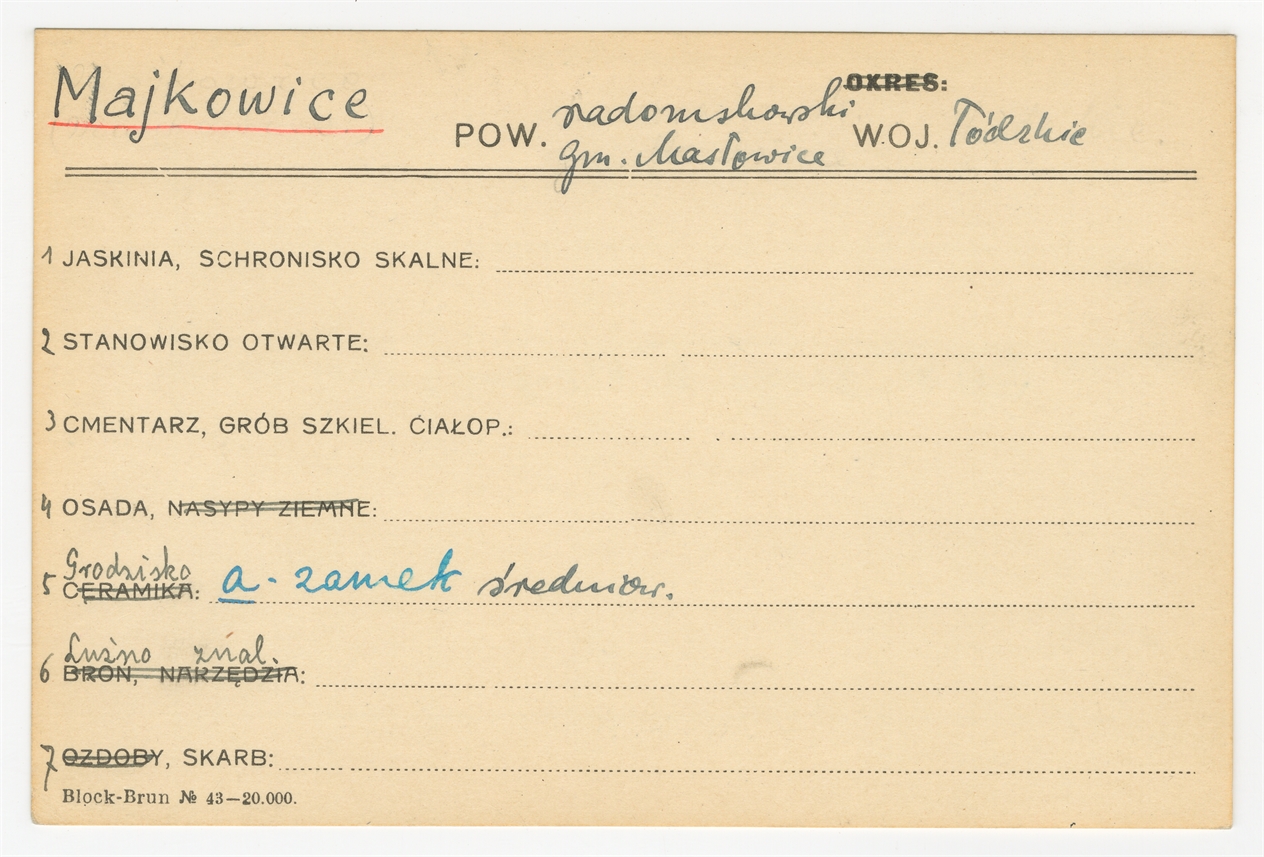 Majkowice
OKRES:
POW. radomskowski WOJ. Łódzkie
gm. Masłowice
1 JASKINIA, SCHRONISKO SKALNE:
2 STANOWISKO OTWARTE:
3 CMENTARZ, GRÓB SZKIEL. CIAŁOP.:
4 OSADA, NASYPY ZIEMNE:
Grodzisko
5 CERAMIKA: a - zamek średniow.
Luźno znal.
6 BROŃ, NARZĘDZIA:
7 OZDOBY, SKARB:
Block-Brun № 43—20.000.